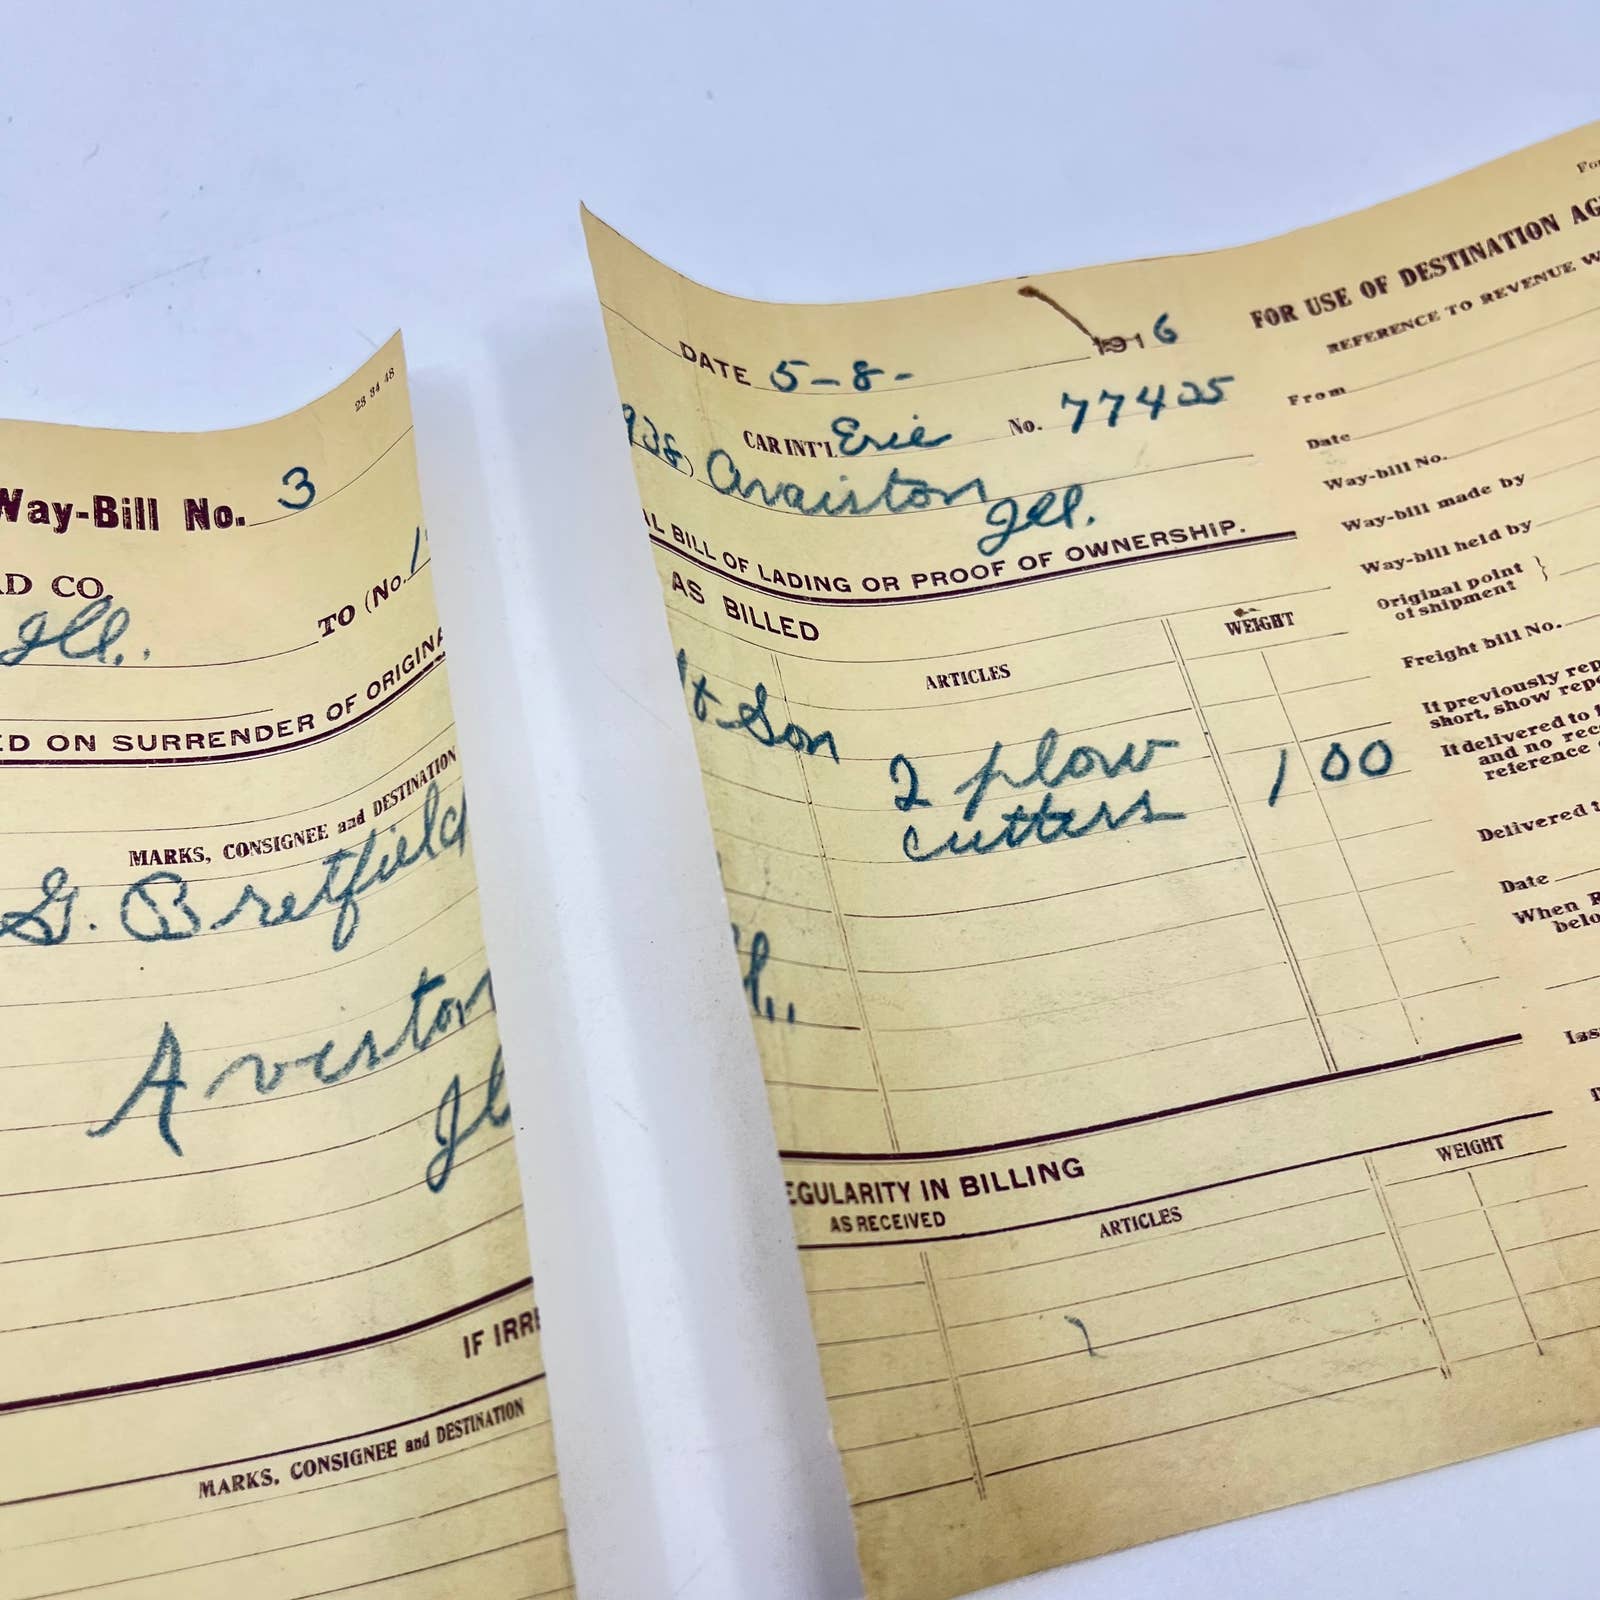 28 34 48
Way-Bill No. 3
AD CO.
Ill.
TO (No. 1
ED ON SURRENDER OF ORIGINA
MARKS, CONSIGNEE and DESTINATION
G. Bretfield
Aviston
Il
IF IRRE
MARKS, CONSIGNEE and DESTINATION
DATE 5-8- 1916
CAR INT'L Erie No. 77425
938) Avaiston
Ill.
AL BILL OF LADING OR PROOF OF OWNERSHIP.
AS BILLED
ARTICLES
WEIGHT
& Son
2 plow
cutters
100
EGULARITY IN BILLING
AS RECEIVED
ARTICLES
WEIGHT
FOR USE OF DESTINATION AG
REFERENCE TO REVENUE W
From
Date
Way-bill No.
Way-bill made by
Way-bill held by
Original point
of shipment }
Freight bill No.
If previously rep
short, show repo
If delivered to
and no rec
reference
Delivered t
Date
When R
belo
Las